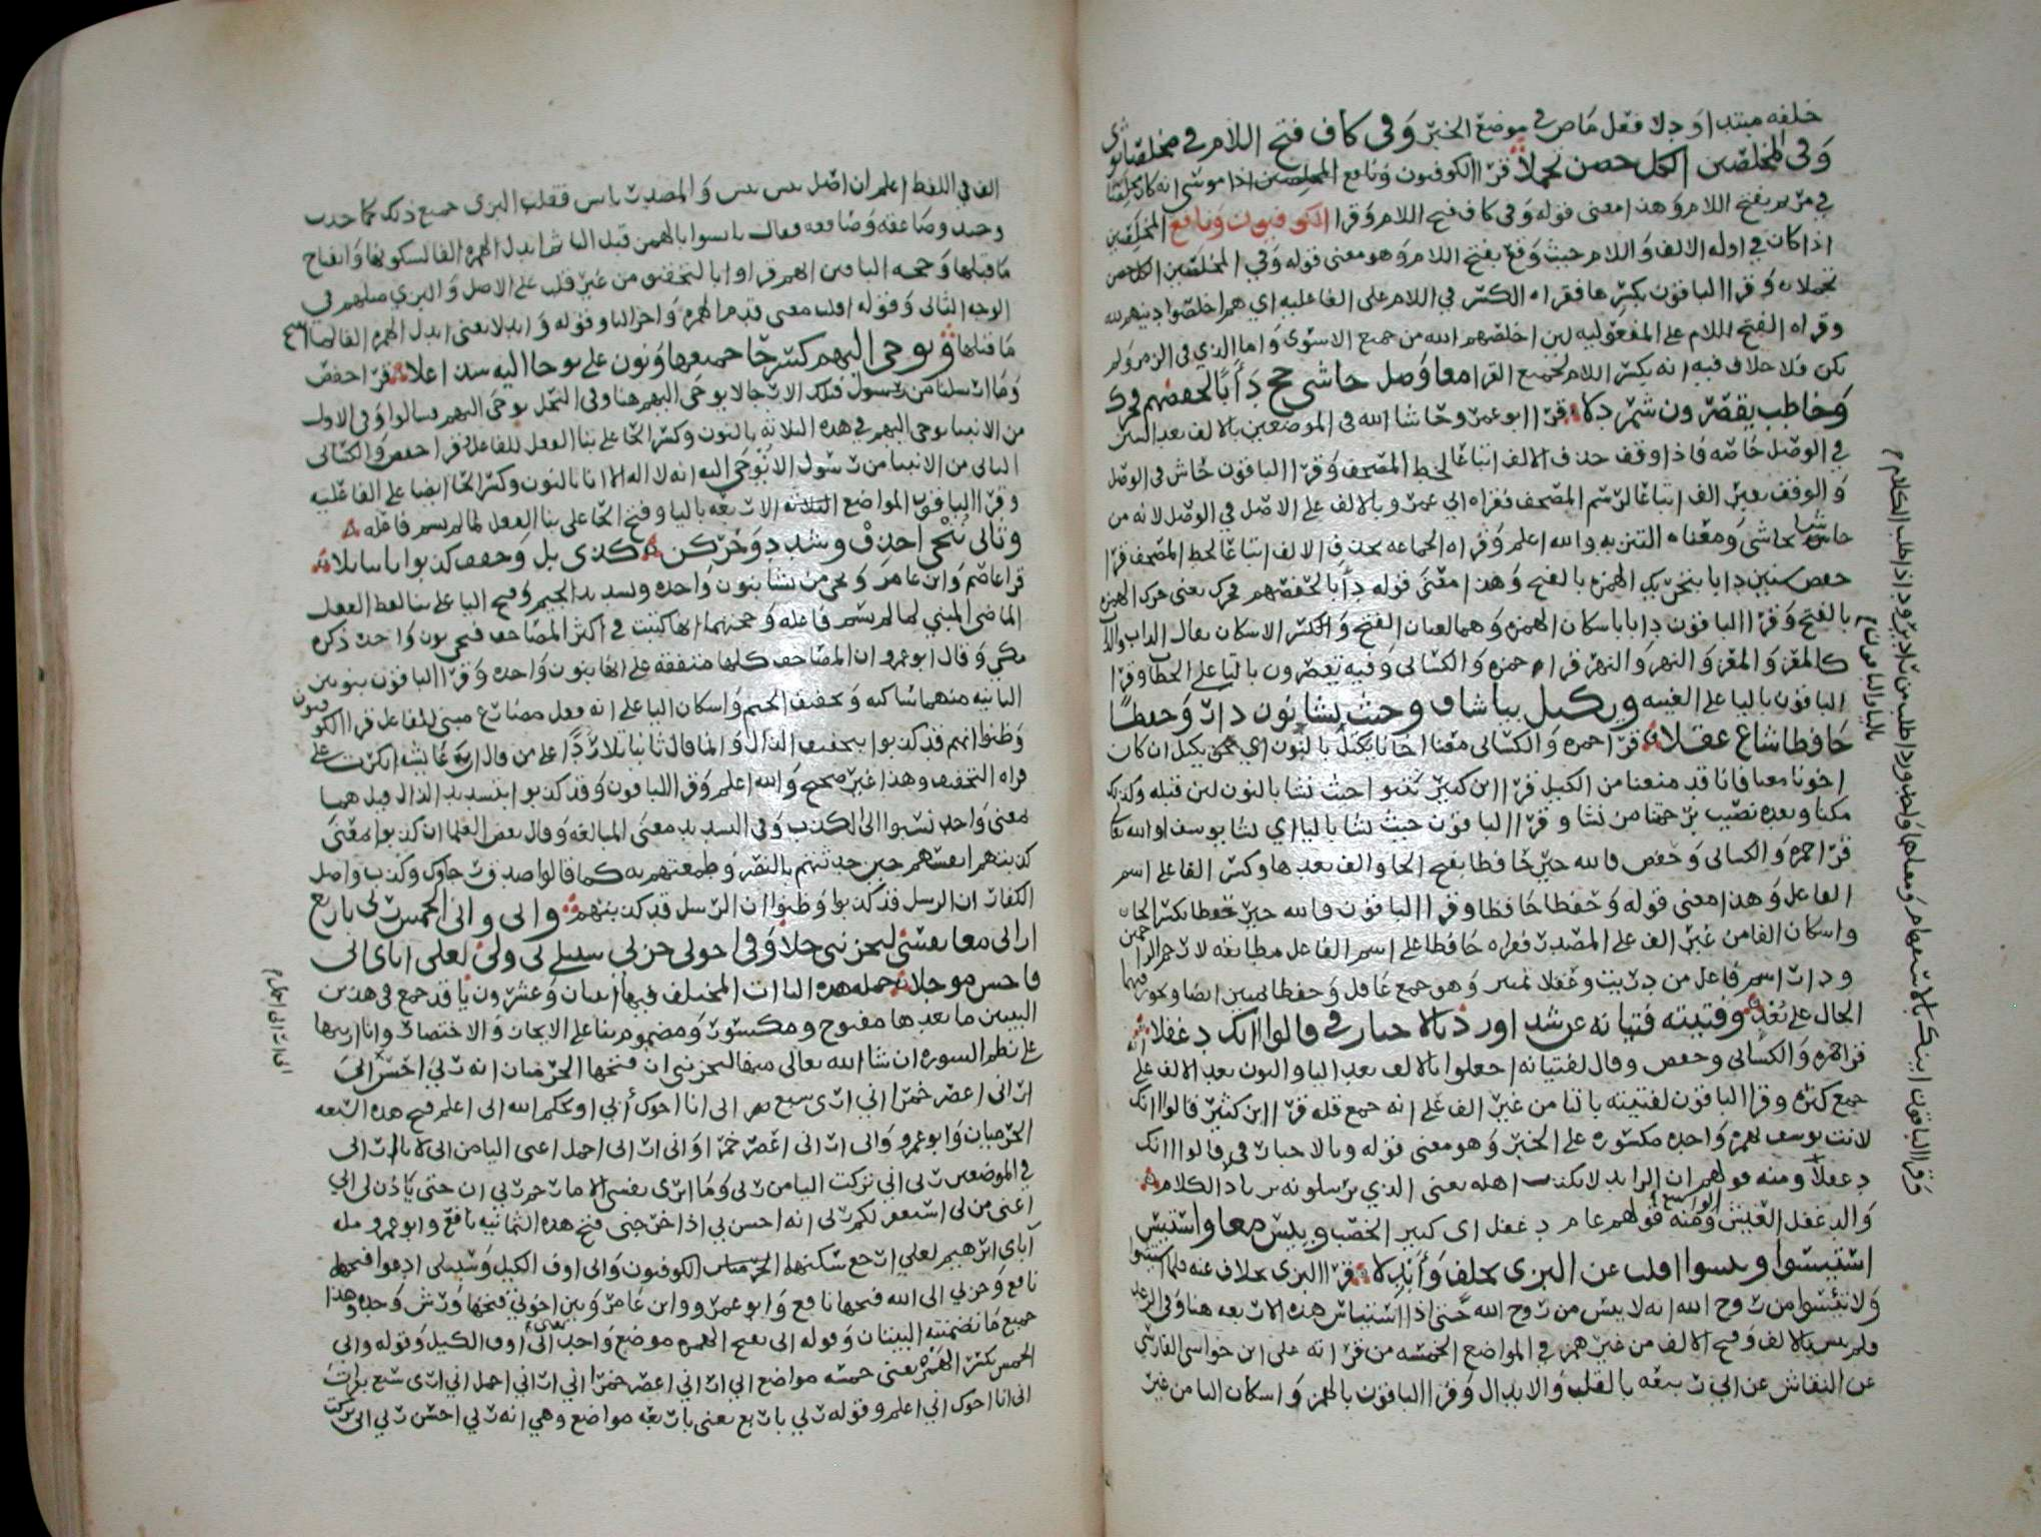 خلفه مبتدا ودلا فعل ماض في موضع الخبر وفى كاف فتح اللام في مخلصا ثوى
وفى المخلصين الكل حصن تجملا قرا الكوفيون ونافع المخلصين اذا موسى انه كان مخلصا
في مريم بفتح اللام وهذا معنى قوله وفى كاف فتح اللام وقرا الكوفيون ونافع المخلصين
اذا كان في اوله الالف واللام حيث وقع بفتح اللام وهو معنى قوله وفي المخلصين الكل حصن
تجملا وقرا الباقون بكسرها فقراه الكسر في اللام على الفاعليه اي هم اخلصوا دينهم لله
وقراه الفتح للام على المفعوليه لان اخلصهم الله من جميع الاسوى واما الذي في الزمر ولم
يكن فلا خلاف فيه انه بكسر اللام لجميع القرا معا وصل حاشى حج دأبا لحفصهم فحرك
وخاطب يعصرون شمردلا قرا ابو عمرو حاشا الله في الموضعين بالالف بعد الشين
في الوصل خاصه فاذا وقف حذف الالف اتباعا لخط المصحف وقرا الباقون حاش فى الوصل
والوقف بغير الف اتباعا لرسم المصحف فقراه ابي عمرو بالالف على الاصل في الوصل لانه من
حاشى يحاشى ومعناه التنزيه والله اعلم وقراه الجماعه بحذف الالف اتباعا لخط المصحف قرا
حفص سنين دابا بتحريك الهمزه بالفتح وهذا معنى قوله دأبا لحفصهم فحرك يعنى حرك الهمزه
بالفتح وقرا الباقون دابا باسكان الهمزه وهما لغتان الفتح والكسر الاسكان يقال الداب والداب
كالمعز والمعز والنهر والنهر قرا حمزه والكسائى وفيه تعصرون بالتا على الخطاب وقرا
الباقون باليا على الغيبه ويكتل بيا شاف وحيث يشا نون دار وحفظا
حافظا شاع عقلا قرا حمزه والكسائى معنا اخانا يكتل بالنون اي نحن نكتل ان كان
اخونا معنا فانا قد منعنا من الكيل قرا ابن كثير يتبوا حيث نشا بالنون لان قبله وكذلك
مكنا وبعده نصيب برحمتنا من نشا وقرا الباقون حيث يشا باليا اي يشا يوسف او الله تعا
قرا حمزه والكسائى وحفص فالله خير حافظا بفتح الحا والف بعدها وكسر الفا على اسم
الفاعل وهذا معنى قوله وحفظا حافظا وقرا الباقون فالله خير حفظا بكسر الحا
واسكان الفا من غير الف على المصدر فقراه حافظا على اسم الفاعل مطابقه لارحم الراحمين
ودار اسم فاعل من دريت وعقلا تمييز وهو جمع عاقل وحفظا تمييز ايضا ويجوز فيهما
الحال على بعد وفتيته فتيانه عن شذا ورد بالاخبار في قالوا ائنك دغفلا
قرا حمزه والكسائى وحفص وقال لفتيانه اجعلوا بالالف بعد اليا والنون بعد الالف على
جمع كثره وقرا الباقون لفتيته بالتا من غير الف على انه جمع قله قرا ابن كثير قالوا انك
لانت يوسف بهمزه واحده مكسوره على الخبر وهو معنى قوله وبالاخبار فى قالوا ائنك
دغفلا ومنه قولهم ان الرايد لا يكذب اهله يعنى الذي يرسلونه يرتاد الكلا
والدغفل العيش الواسع ومنه قولهم عام دغفل اى كبير الخصب وييئس معا واستيئس
استيئسوا وتيئسوا اقلب عن البزى بخلف وابدلا قرا البزى بخلاف عنه فلما استيئسوا
ولا تيئسوا من روح الله انه لا ييئس من روح الله حتى اذا استيئس هذه الاربعه هنا وفي الرعد
ولم ييئس بالالف وفتح الالف من غير همز في المواضع الخمسه من قراته على ابن خواستى الفارسي
عن النقاش عن ابي ربيعه بالقلب والابدال وقرا الباقون بالهمز واسكان اليا من غير
وقرا الباقون ائنك بالاستفهام
باليا والباقون
الف في اللفظ اعلم ان اصل ييس يئس والمصدر ياس فقلب البزى جميع ذلك كما جذب
وجبذ وصاعقه وصاقعه فقال يايسوا بالهمز قبل اليا ثم ابدل الهمزه الفا لسكونها وانفتاح
ما قبلها وحجه الباقين انهم قراوا بالتخفيف من غير قلب على الاصل والبزي مثلهم في
الوجه الثانى وقوله اقلب معنى قدم الهمزه واخر اليا وقوله وابدلا يعنى ابدل الهمزه الفا
ما قبلها ويوحى اليهم كسر حا جميعها ونون على يوحا اليه شذا علا قرا حفص
وما ارسلنا من رسول قبلك الا رجالا يوحى اليهم هنا وفى النحل يوحى اليهم فسالوا وفى الاول
من الانبيا يوحى اليهم في هذه الثلاثه بالنون وكسر الحا على بنا الفعل للفاعل قرا حفص والكسائى
الثانى من الانبيا من رسول الا نوحى اليه انه لا اله الا انا بالنون وكسر الحا ايضا على الفاعليه
وقرا الباقون المواضع الثلاثه الاربعه باليا وفتح الحا على بنا الفعل لما لم يسم فاعله
وثانى ننجى احذف وشدد وحركن كذى نل وخفف كذبوا ثابتا تلا
قرا عاصم وابن عامر فنجى من نشا بنون واحده وتشديد الجيم وفتح اليا على بنا لفظ الفعل
الماضى المبني لما لم يسم فاعله وحجتهما انها كتبت في اكثر المصاحف فنجى بنون واحده ذكره
مكي وقال ابو عمرو ان المصاحف كلها متفقه على انها بنون واحده وقرا الباقون بنونين
الثانيه منهما ساكنه وتخفيف الجيم واسكان اليا على انه فعل مضارع مبنى للفاعل قرا الكوفيون
وظنوا انهم قد كذبوا بتخفيف الذال وانما قال ثابتا تلا ردا على من قال ان عايشه انكرت على
قراه التخفيف وهذا غير صحيح والله اعلم وقرا الباقون وقد كذبوا بتشديد الذال قيل هما
بمعنى واحد نسبوا الى الكذب وفى التشديد معنى المبالغه وقال بعض العلما ان كذبوا معنى
كذبتهم انفسهم حين حدثتهم بالنصر وطمعتهم به كما قالوا صدق رجاوك وكذب واصل
الكفار ان الرسل قد كذبوا وظنوا ان الرسل قد كذبتهم وانى وانى الخمس ربى باربع
ارانى معا نفسى ليحزننى حلا وفى اخوتى حزنى سبيلى لى ولى لعلى اباى ابى
فاخس موحلا جمله هذه اليات المختلف فيها اثنان وعشرون ياقد جمع في هذين
البيتين ما بعدها مفتوح ومكسور ومضموم بنا على الايجاز والاختصار وانا ارتبها
على نظم السوره ان شا الله تعالى منها ليحزننى ان فتحها الحرميان انه ربي احسن انى
ارانى اعصر خمرا انى ارى سبع بقرات انى انا اخوك ابي او يحكم الله لى اعلم فتح هذه السبعه
الحرميان وابو عمرو وانى ارانى اعصر خمرا وانى ارانى احمل اعنى اليا من انى لا يا ارانى
في الموضعين ربى انى تركت اليا من ربى وما ابرى نفسى الا ما رحم ربي ان حتى ياذن لى ابي
اعنى من لى استغفر لكم ربى انه احسن بي اذا اخرجنى فتح هذه الثمانيه نافع وابو عمرو مله
آباى ابرهيم لعلي ارجع سكنها الكوفيون وانى اوف الكيل وسبيلى ادعوا فتحهما
نافع وحزني الى الله فتحها نافع وابو عمرو وابن عامر وبين اخوتي فتحها ورش وحده وهذا
جميع ما تضمنته البيتان وقوله انى بفتح الهمزه موضع واحد انى اوف الكيل وقوله وانى
الخمس بكسر الهمزه يعنى خمسه مواضع انى ارانى اعصر خمرا اني ارانى احمل اني ارى سبع بقرات
انى انا اخوك اني اعلم وقوله ربي باربع يعنى باربعه مواضع وهي انه ربي احسن ربي انى تركت